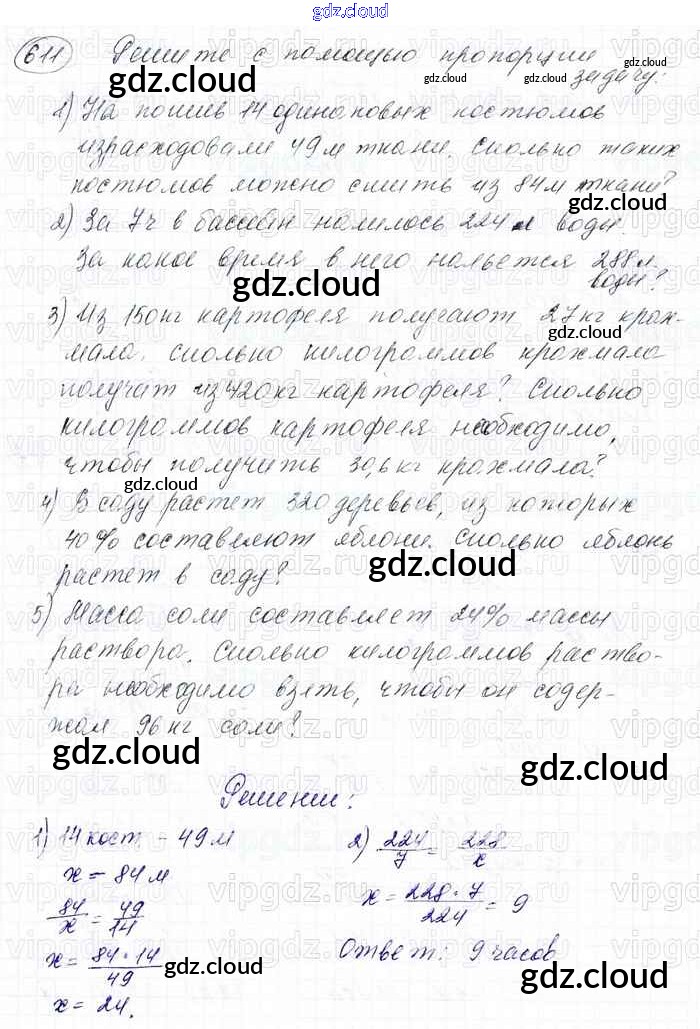 gdz.cloud
611 Решите с помощью пропорции
задачу:
1) На пошив 14 одинаковых костюмов
израсходовали 49 м ткани. Сколько таких
костюмов можно сшить из 84 м ткани?
2) За 7 ч в бассейн налилось 224 л воды.
За какое время в него нальется 288 л
воды?
3) Из 150 кг картофеля получают 27 кг крах-
мала. Сколько килограммов крахмала
получат из 420 кг картофеля? Сколько
килограммов картофеля необходимо,
чтобы получить 30,6 кг крахмала?
4) В саду растет 320 деревьев, из которых
40% составляют яблони. Сколько яблонь
растет в саду?
5) Масса соли составляет 24% массы
раствора. Сколько килограммов раство-
ра необходимо взять, чтобы он содер-
жал 96 кг соли?
Решени:
1) 14 кост – 49 м
x – 84 м
84/x = 49/14
x = 84·14/49
x = 24.
2) 224/7 = 228/x
x = 228·7/224 = 9
Ответ: 9 часов
gdz.cloud
vipgdz.ru